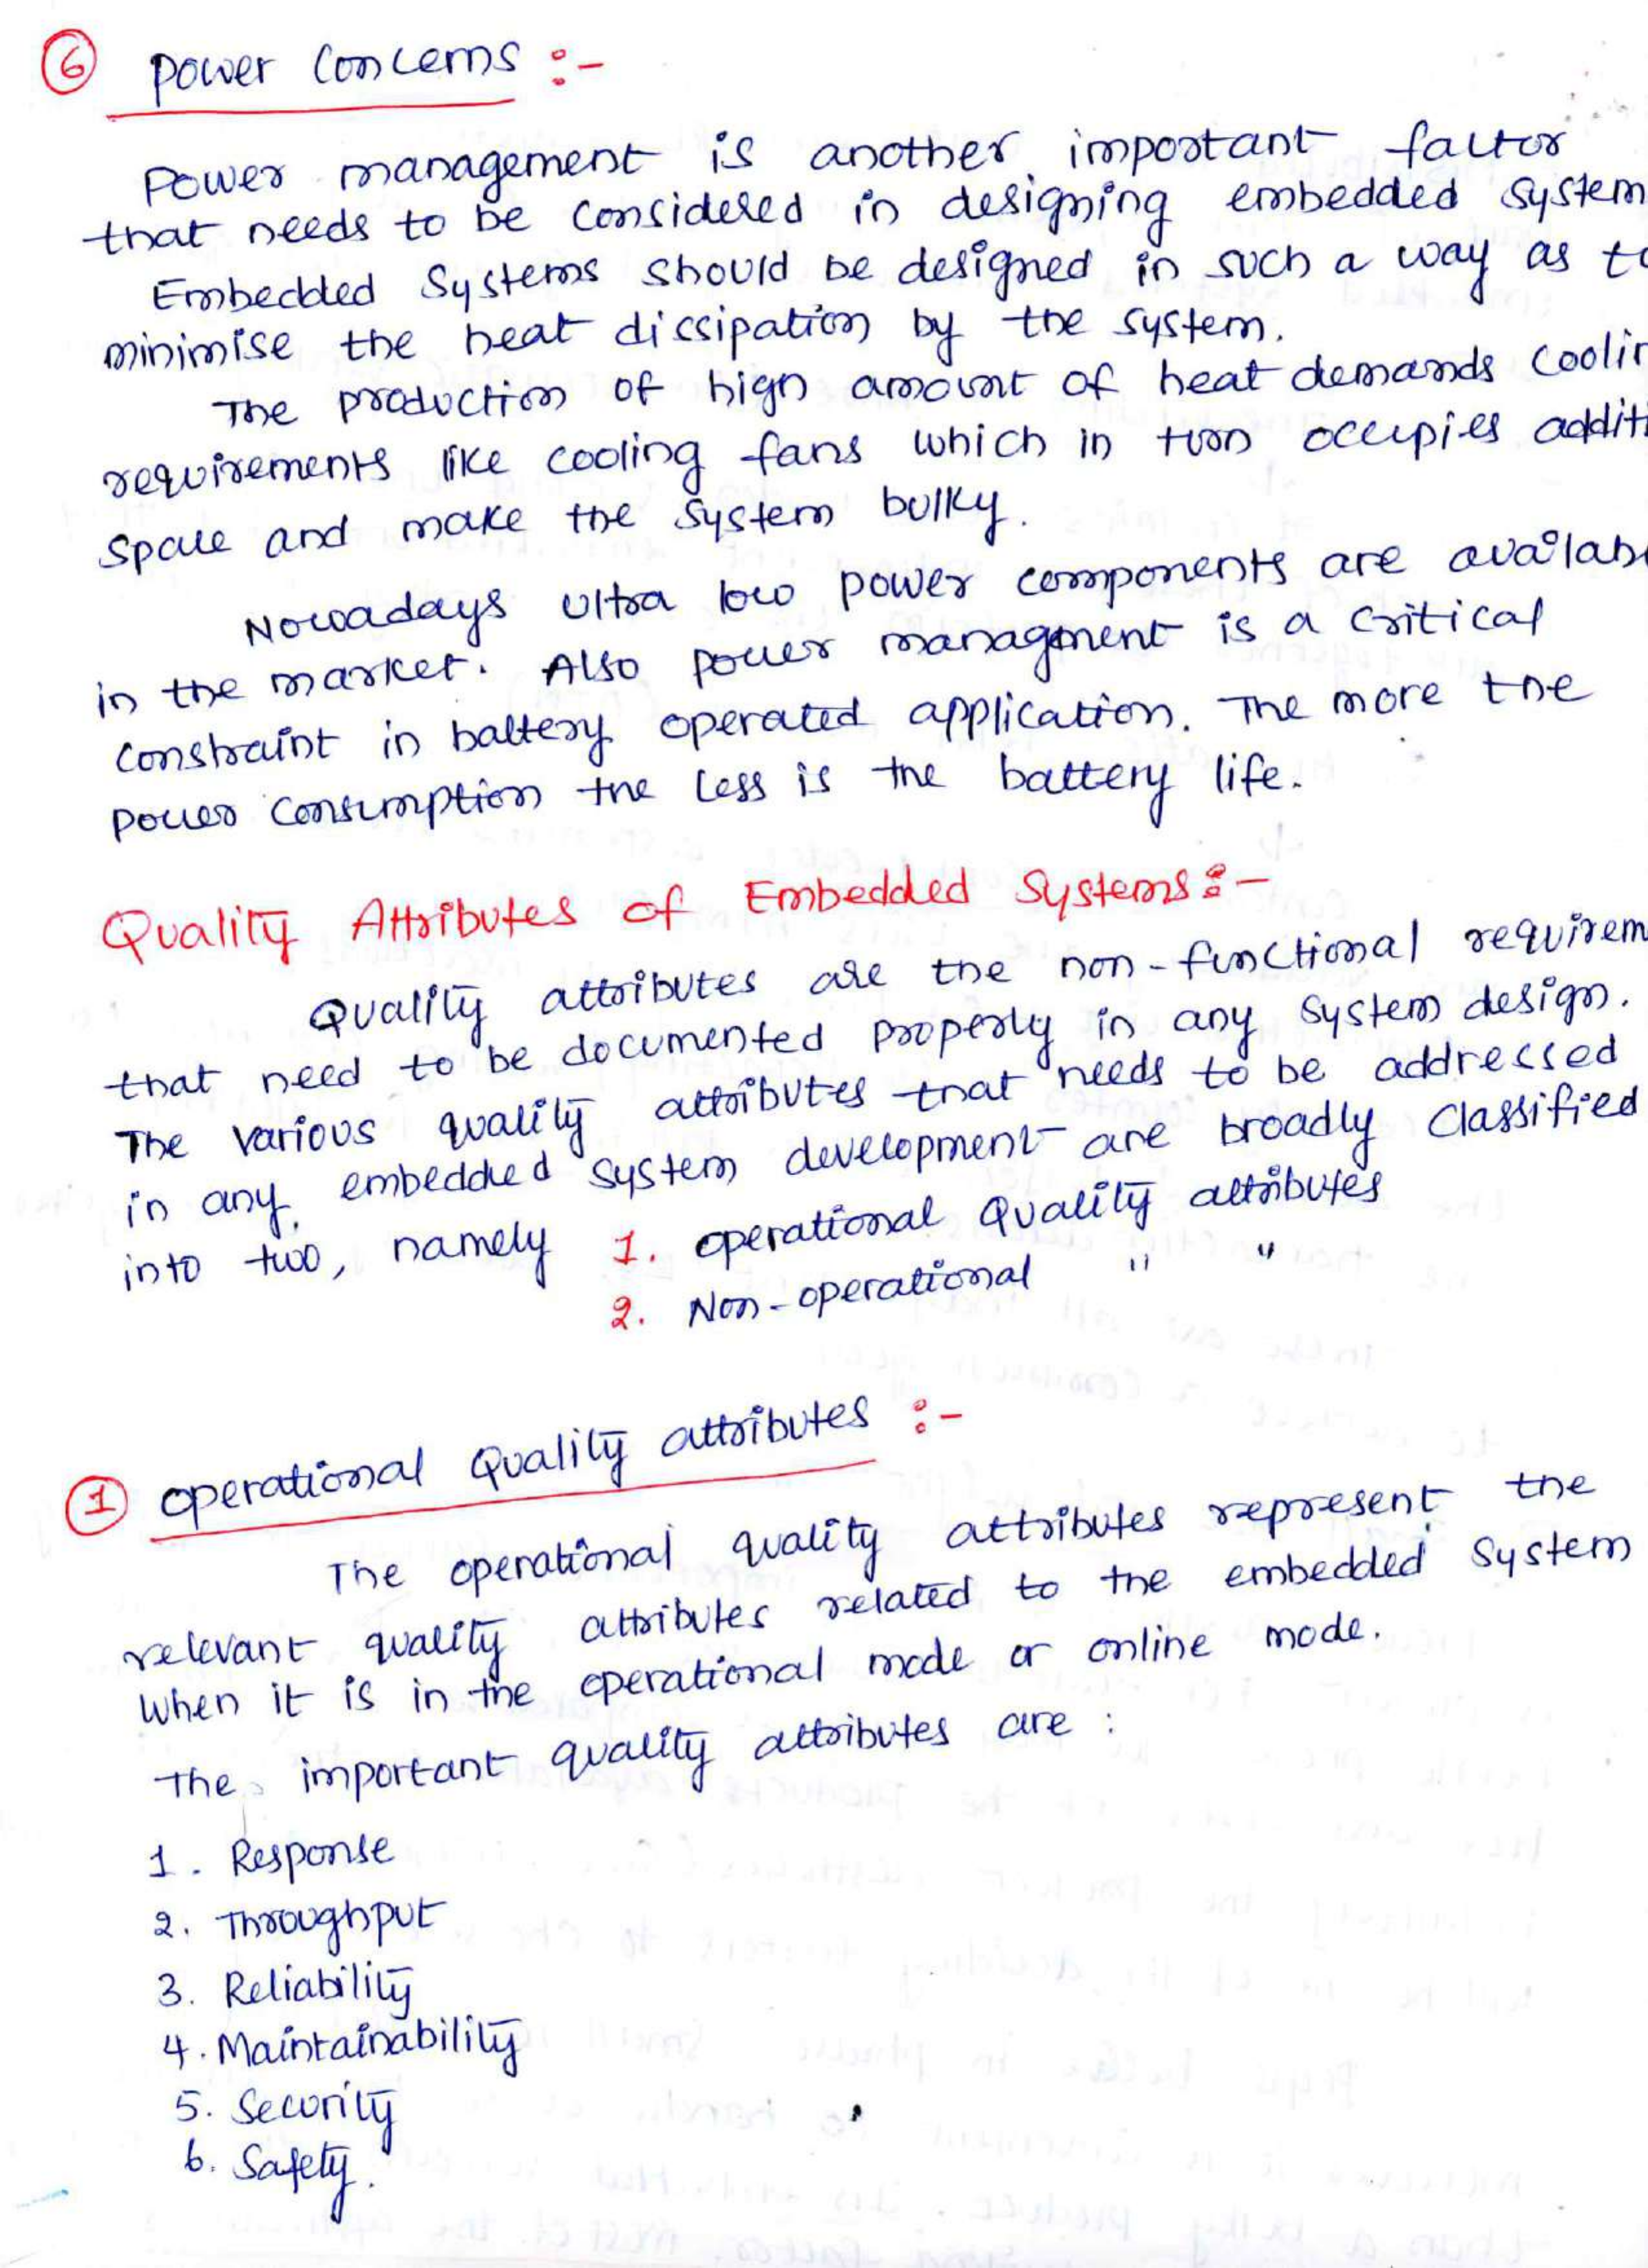 6 Power Concerns :-
Power management is another important factor
that needs to be considered in designing embedded system
Embedded Systems should be designed in such a way as to
minimise the heat dissipation by the system.
The production of high amount of heat demands coolin
requirements like cooling fans which in turn occupies additi
space and make the system bulky.
Nowadays ultra low power components are availab
in the market. Also power management is a critical
constraint in battery operated application. The more the
power consumption the less is the battery life.
Quality Attributes of Embedded Systems :-
Quality attributes are the non-functional requirem
that need to be documented properly in any system design.
The various quality attributes that needs to be addressed
in any embedded system development are broadly classified
into two, namely 1. operational Quality attributes
2. Non-operational " "
1 operational Quality attributes :-
The operational quality attributes represent the
relevant quality attributes related to the embedded system
when it is in the operational mode or online mode.
The important quality attributes are :
1. Response
2. Throughput
3. Reliability
4. Maintainability
5. Security
6. Safety.